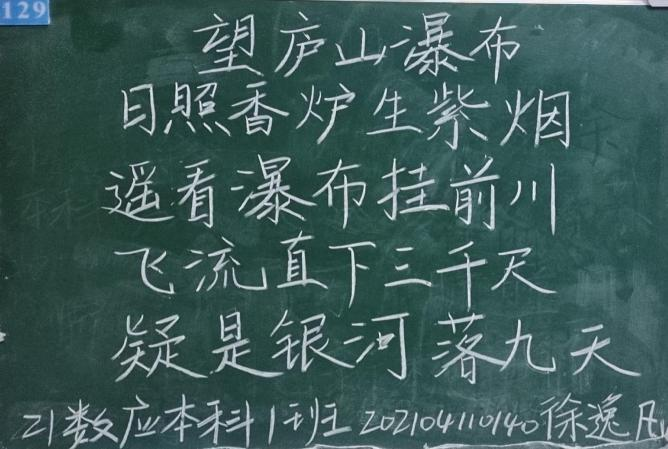 129
望庐山瀑布
日照香炉生紫烟
遥看瀑布挂前川
飞流直下三千尺
疑是银河落九天
21数应本科1班 202104110140徐逸凡